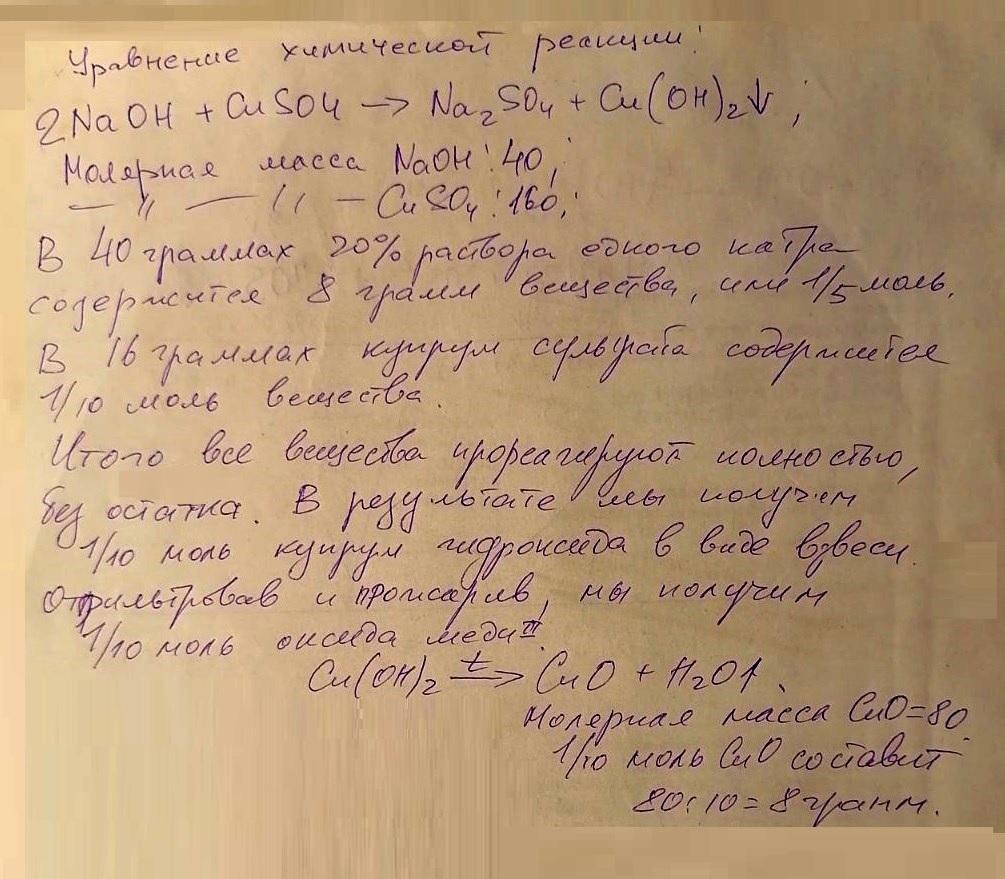 Уравнение химической реакции:
2NaOH + CuSO4 → Na2SO4 + Cu(OH)2↓;
Молерная масса NaOH: 40;
— " — " — CuSO4: 160;
В 40 граммах 20% раствора едкого натра
содержится 8 грамм вещества, или 1/5 моль.
В 16 граммах купрум сульфата содержится
1/10 моль вещества.
Итого все вещества прореагируют полностью,
без остатка. В результате мы получим
1/10 моль купрум гидроксида в виде взвеси.
Отфильтровав и прожарив, мы получим
1/10 моль оксида меди II.
Cu(OH)2 t→ CuO + H2O↑.
Молерная масса CuO=80.
1/10 моль CuO составит
80:10=8 грамм.